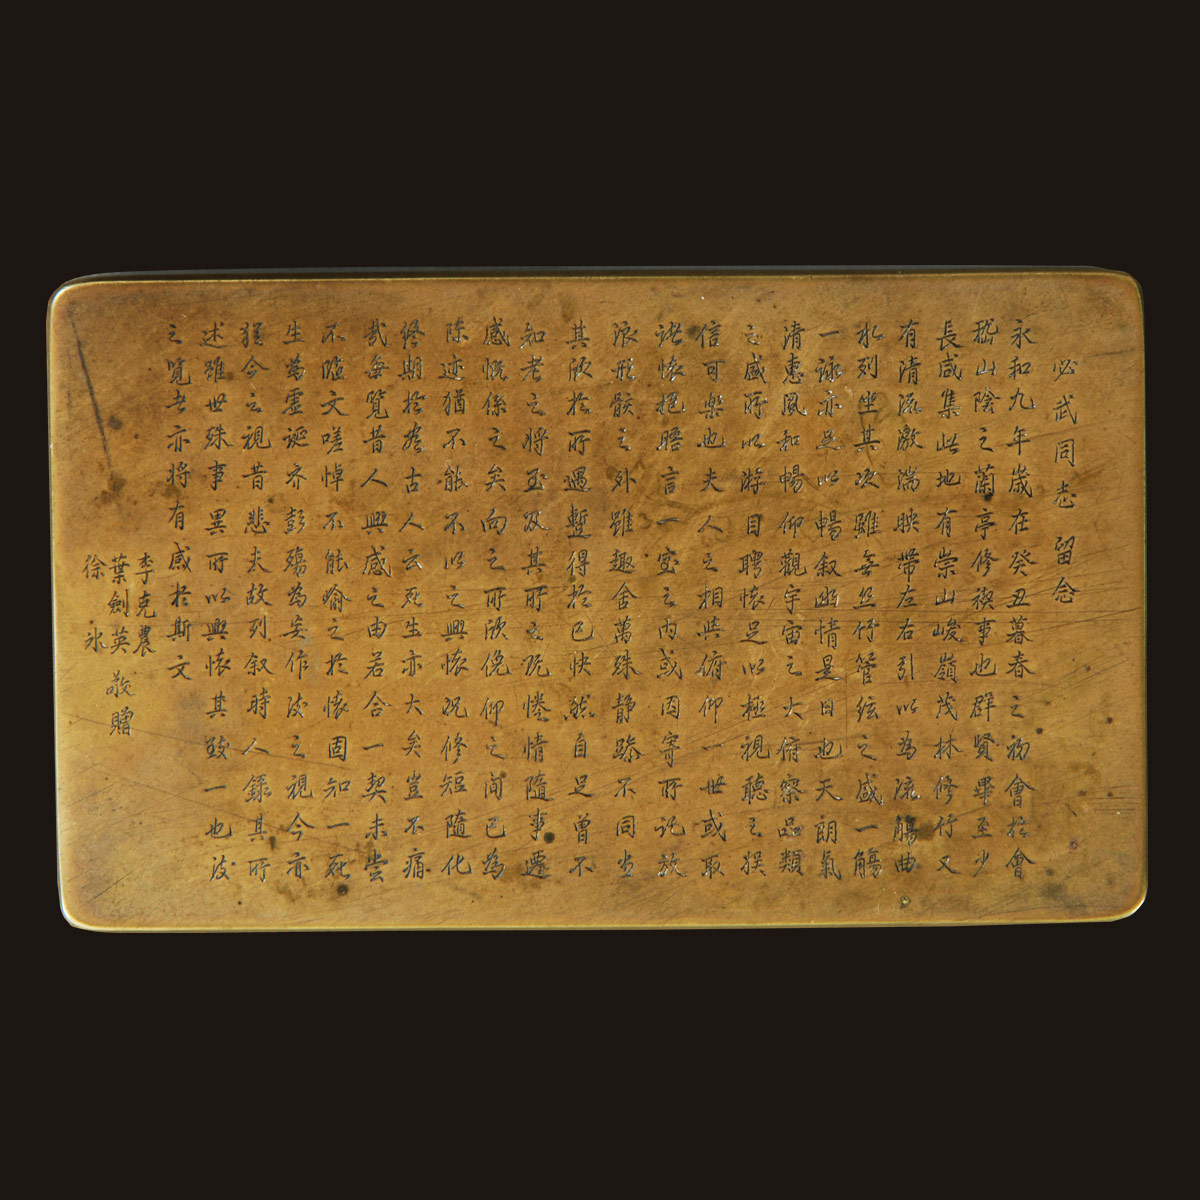 必武同志 留念
永和九年歲在癸丑暮春之初會於會
嵇山陰之蘭亭修禊事也群賢畢至少
長咸集此地有崇山峻嶺茂林修竹又
有清流激湍映帶左右引以為流觴曲
水列坐其次雖無絲竹管絃之盛一觴
一詠亦足以暢叙幽情是日也天朗氣
清惠風和暢仰觀宇宙之大俯察品類
之盛所以游目騁懷足以極視聽之娱
信可樂也夫人之相與俯仰一世或取
諸懷抱晤言一室之内或因寄所託放
浪形骸之外雖趣舍萬殊静躁不同當
其欣於所遇暫得於己快然自足曾不
知老之將至及其所之既惓情隨事遷
感慨係之矣向之所欣俛仰之间已為
陈迹猶不能不以之興懷况修短隨化
終期於盡古人云死生亦大矣豈不痛
哉每覽昔人興感之由若合一契未嘗
不臨文嗟悼不能喻之於懷固知一死
生為虛诞齐彭殤為妄作後之視今亦
猶今之視昔悲夫故列叙時人錄其所
述雖世殊事異所以興懷其致一也後
之覽者亦將有感於斯文
李克農
葉劍英 敬贈
徐冰